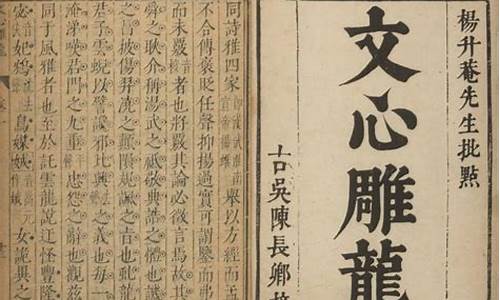 楊升菴先生批點
文心雕龍
古吳陳長卿
同詩雅四家舉以方經而孟
不合傳褒貶任聲抑揚過實可謂鑒而弗
而未覈者也將覈其論必徵言焉故其
舜之耿介稱湯武之祗敬典誥之體也
之猖披傷羿澆之顛隕規諷之旨也虬龍
君子雲蜺以譬讒邪比興之義也每一
淹涕嘆君門之九重忠怨之辭也觀茲
同于風雅者也至於託雲龍說迂怪豐隆
宓妃鴆鳥媒娀女詭異之